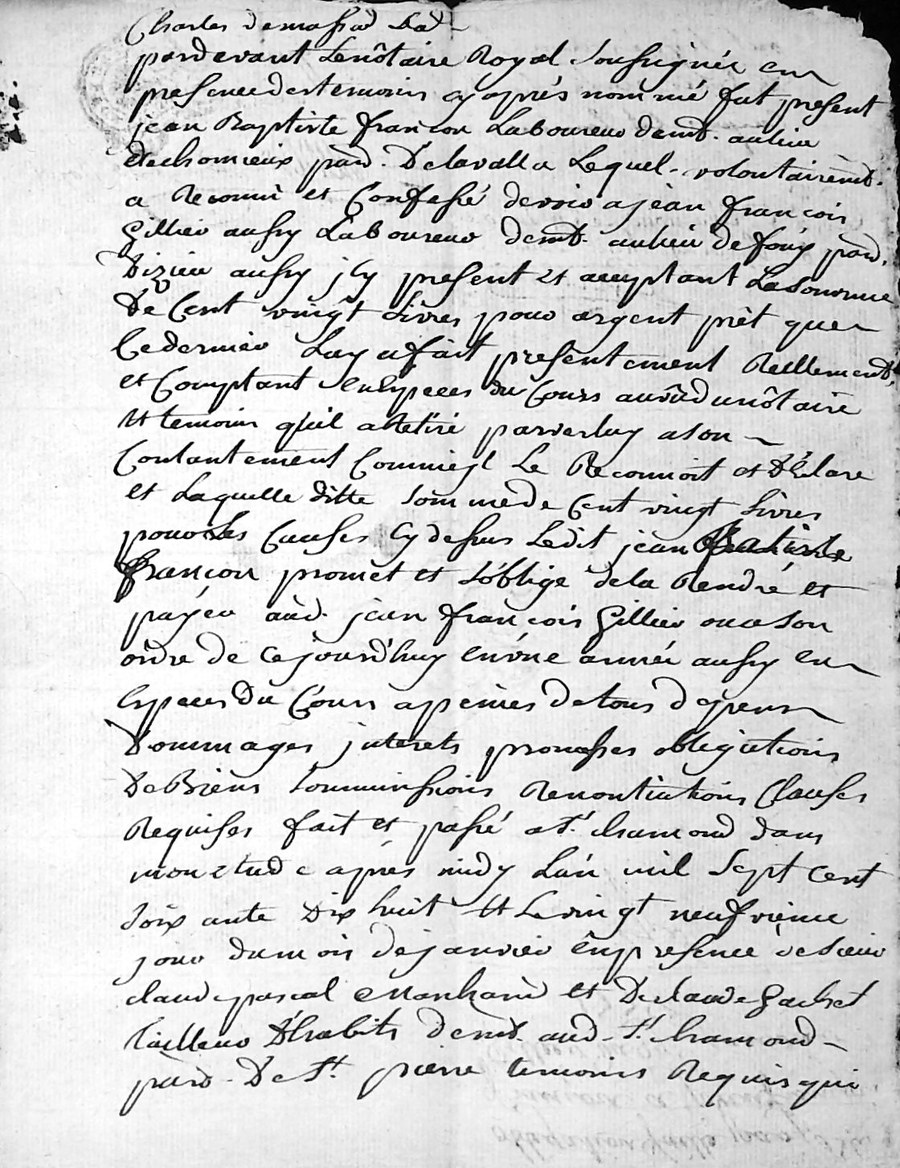 pardevant Le nôtaire Royal Soussignée en
presence des temoins cy aprés nommé fut present
jean Baptiste françon Laboureur demt. au lieu
de chomieux par. De lavalla Lequel volontairemt.
a Reconnù et Confessé devoir a jean françois
Gillier aussy Laboureur demt. au lieu de fonÿ par.
D'izieu aussy jcy present et acceptant La Somme
De Cent vingt Livres pour argent prêt que
Ce dernier Luy a fait presentement Réellement
et Comptant en Especes du Cours au vû du nôtaire
Et temoins qu'il a Retiré par verluy a son
Contantement Comme jl Le Reconnoit et Déclare
et Laquelle ditte Somme de Cent vingt Livres
pour Les Causes cy dessus Ledit jean Baptiste
françon promet et s'oblige de la Rendre et
payer aud. jean françois Gillier ou a son
ordre de ce jourd'huy en une année aussy en
Especes du Cours a peines de tous dépens
Dommages jnterets promesses obligations
De Biens Soummissions Renontiations Clauses
Requises fait et passé a St. chamond dans
mon etude aprés midy L'an mil Sept Cent
Soixante Dix huit Et Le vingt neufvieme
jour du mois de janvier en presence de sieur
claude pascal Marchand et De claude Gachet
Tailleur D'habits demt. aud. St. chamond
paro. De St. pierre temoins Requis qui